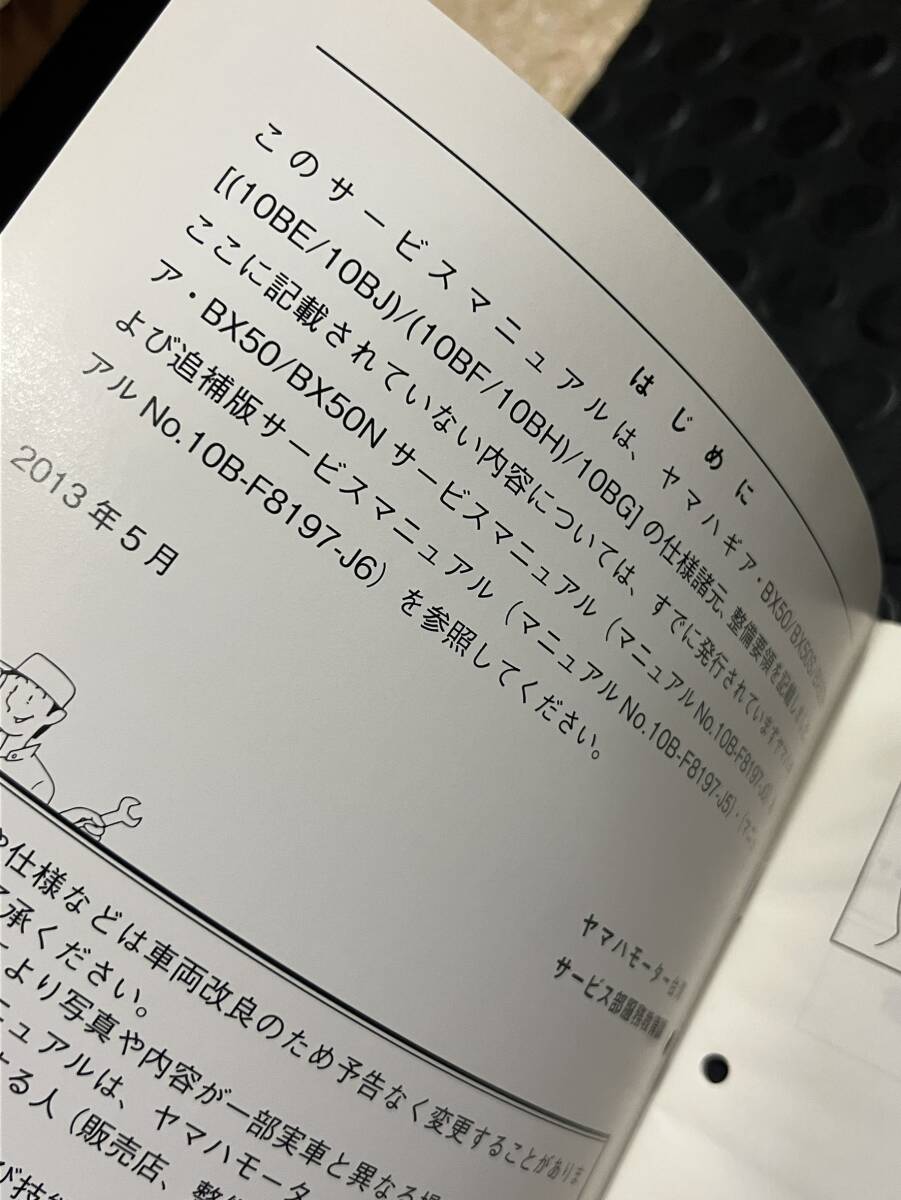 はじめに
このサービスマニュアルは、ヤマハギア・BX50/BX50S/
[(10BE/10BJ)/(10BF/10BH)/10BG] の仕様諸元、整備要領を記載しました。
ここに記載されていない内容については、すでに発行されていますヤマハギ
ア・BX50/BX50N サービスマニュアル（マニュアル No.10B-F8197-
よび追補版サービスマニュアル（マニュアル No.10B-F8197-J5）・（マニュ
アル No.10B-F8197-J6）を参照してください。
2013 年 5 月
ヤマハモーター
サービス部
仕様などは車両改良のため予告なく変更することがありま
承ください。
より写真や内容が一部実車と異なる場
ニュアルは、ヤマハモータ
する人（販売店、整
び技